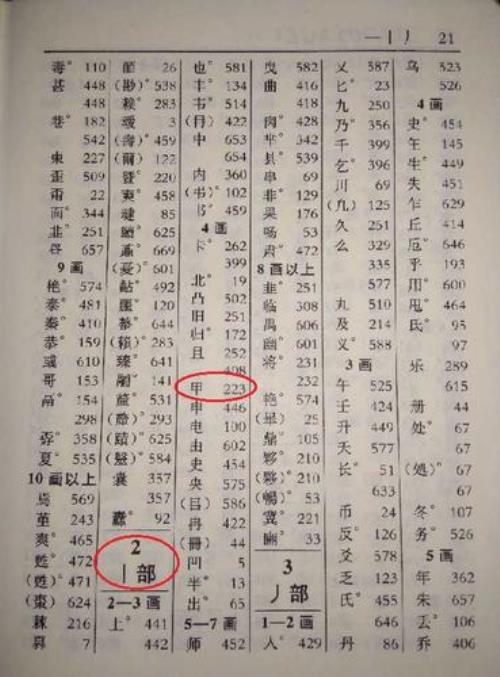 一丨丿 21
毒° 110
甚 448
448
巷° 182
542
柬 227
歪 509
甭 22
面° 344
韭° 251
昼 657
9 画
艳° 574
泰° 481
秦° 410
恭° 159
彧 610
哥° 153
鬲° 154
298
孬° 358
夏° 535
10 画以上
焉 569
堇 243
爽° 465
甦° 472
(甦)° 471
(棗) 624
棘 216
26
(尠)° 538
赖° 283
3
(壽)° 459
(爾) 122
暨° 220
爽° 458
85
625
669
(憂)° 601
492
匽° 120
644
(賴)° 283
臻° 641
141
531
293
(賾)° 625
584
囊 357
357
蠹° 92
2
丨部
2—3 画
上° 441
442
也° 581
丰° 134
韦° 514
(冃) 422
中 653
654
内 360
(书)° 102
书° 459
4 画
卡° 262
399
北° 19
凸 502
旧 251
归° 172
且 252
408
甲 223
申 446
电 100
由 602
史 454
央 575
(目) 586
冉 422
(冊) 44
凹 5
半° 13
出° 65
5—7 画
师 452
曳 582
曲 416
418
肉° 428
芈° 342
县° 539
串 69
非° 129
果 176
畅° 53
肃° 472
8 画以上
韭° 251
临 308
禺 606
幽° 601
将° 231
232
艳° 574
(畢) 25
鼎° 105
夥° 210
(夥)° 210
(暢)° 53
冀° 221
豳° 33
3
丿部
1—2 画
人° 429
乂 587
匕° 23
九 250
乃° 356
千 399
乞° 396
川 69
(凢) 125
久 251
么 329
335
577
丸 510
及 214
义° 588
3 画
午 525
壬 424
升 449
夭 577
长° 51
633
币 24
反° 126
爻 578
乏 123
氏° 455
646
丹 86
乌 523
526
4 画
史° 454
年 145
生° 449
失 451
乍° 629
丘 414
卮° 646
乎 193
用° 600
甩° 464
氐° 95
97
乐 289
615
册 44
处° 67
67
(処)° 67
67
冬° 107
务° 526
5 画
年 362
朱° 657
丢° 106
乔 406